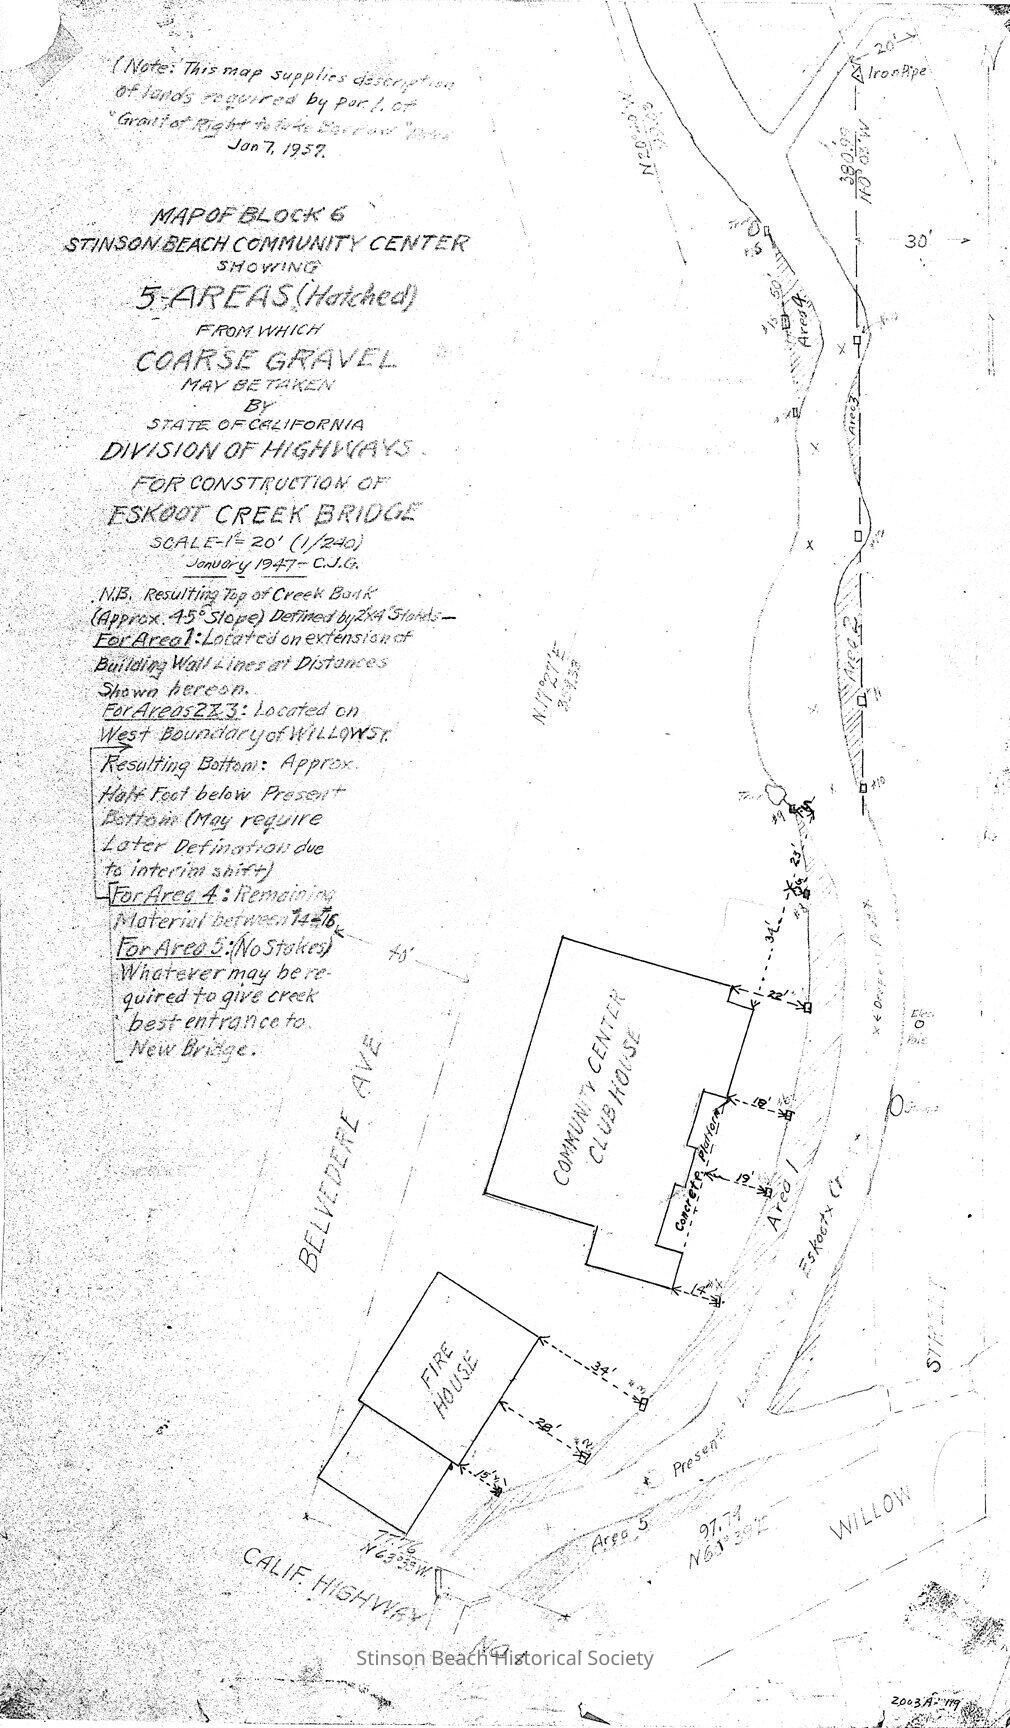 (Note: This map supplies description
of lands required by Par. 1. of
"Grant of Right to
Jan 7, 1957.
MAP OF BLOCK 6
STINSON BEACH COMMUNITY CENTER
SHOWING
5-AREAS (Hatched)
FROM WHICH
COARSE GRAVEL
MAY BE TAKEN
BY
STATE OF CALIFORNIA
DIVISION OF HIGHWAYS
FOR CONSTRUCTION OF
ESKOOT CREEK BRIDGE
SCALE-1"= 20' (1/240)
January 1947- C.J.G.
N.B. Resulting Top of Creek Bank
(Approx. 45° Slope) Defined by 2x4"Stakes-
For Area 1: Located on extension of
Building Wall Lines at Distances
Shown hereon.
For Areas 2&3: Located on
West Boundary of WILLOW St.
Resulting Bottom: Approx.
Half Foot below Present
Bottom (May require
Later Defination due
to interim shift)
For Area 4: Remaining
Material between #14-#16
For Area 5: (No Stakes)
Whatever may be re-
quired to give creek
best entrance to
New Bridge.
20'
Iron Pipe
380.99
30'
50'
Area 4
Area 3
Area 2
N.17°27'E
359.38
#10
#9
23'
34'
22'
40'
COMMUNITY CENTER
CLUB HOUSE
Concrete Platform
18'
19'
14'
Elec.
Pole
Area 1
Eskoot Cr.
BELVEDERE AVE
FIRE
HOUSE
34'
#3
28'
#2
15'
STREET
Present
Area 5
97.79
WILLOW
77.76
N63°33'W
CALIF. HIGHWAY
No.
Stinson Beach Historical Society
2003A-119